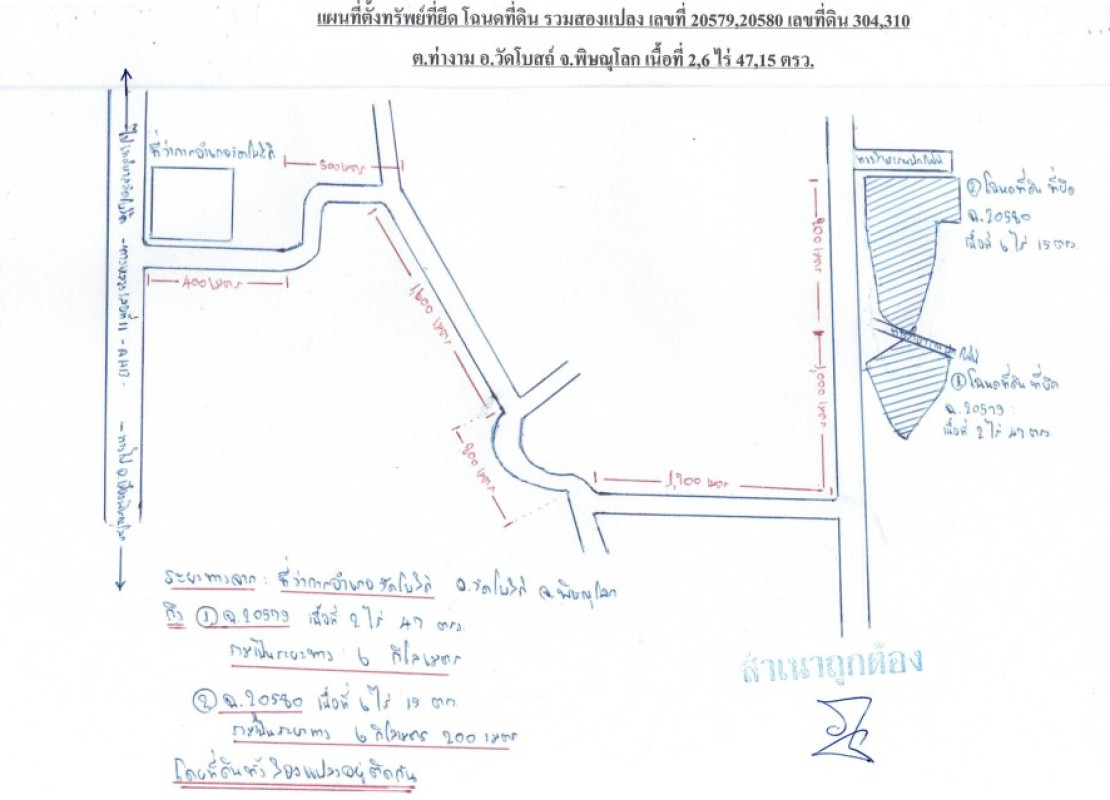 แผนที่ตั้งทรัพย์ที่ยึด โฉนดที่ดิน รวมสองแปลง เลขที่ 20579,20580 เลขที่ดิน 304,310
ต.ท่างาม อ.วัดโบสถ์ จ.พิษณุโลก เนื้อที่ 2,6 ไร่ 47,15 ตรว.
ที่ว่าการอำเภอวัดโบสถ์
500 เมตร
400 เมตร
② โฉนดที่ดิน ที่ยึด
ฉ.20580
เนื้อที่ 6 ไร่ 15 ตรว.
① โฉนดที่ดิน ที่ยึด
ฉ.20579
เนื้อที่ 2 ไร่ 47 ตรว.
1,000 เมตร
ระยะทางจาก : ที่ว่าการอำเภอวัดโบสถ์ อ.วัดโบสถ์ จ.พิษณุโลก
ถึง ① ฉ.20579 เนื้อที่ 2 ไร่ 47 ตรว.
รวมเป็นระยะทาง 6 กิโลเมตร
② ฉ.20580 เนื้อที่ 6 ไร่ 15 ตรว.
รวมเป็นระยะทาง 6 กิโลเมตร 200 เมตร
โดยที่ดินทั้งสองแปลงอยู่ติดกัน
สำเนาถูกต้อง